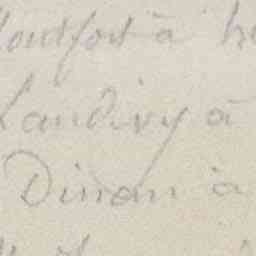 Montfort à
Landivy à
Dinan à